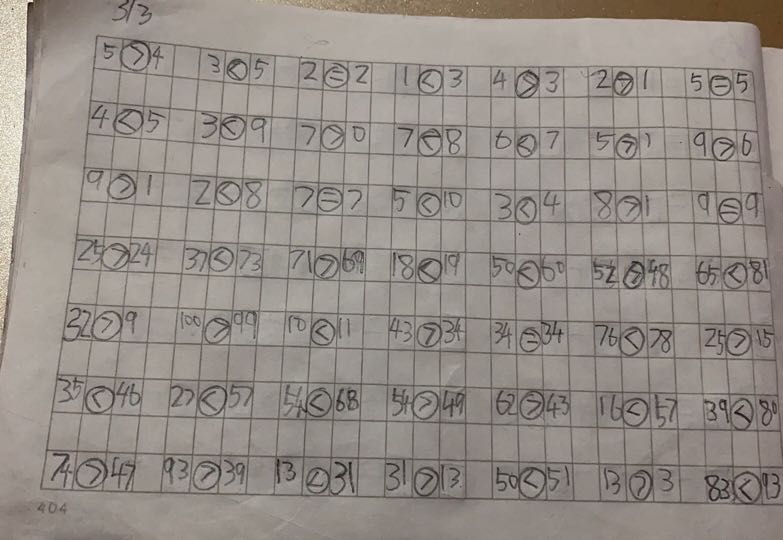 3/3
5>4 3<5 2=2 1<3 4>3 2>1 5=5
4<5 3<9 7>0 7<8 6<7 5>1 9>6
9>1 2<8 7=7 5<10 3<4 8>1 9=9
25>24 37<73 71>69 18<19 50<60 52>48 65<81
32>9 100>99 10<11 43>34 34=34 76<78 25>15
35<46 27<57 54<68 54>49 62>43 16<57 39<80
74>47 93>39 13<31 31>13 50<51 13>3 83<93
404